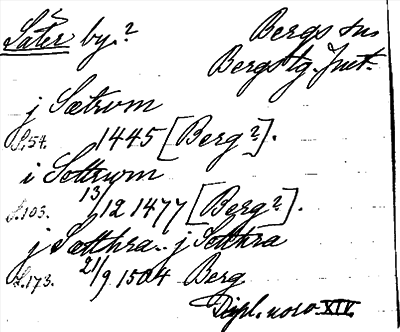 Säter by.? Bergs sn
Bergslg. Just.
j Sætrom
S. 54. 1445 [Berg?].
i Settrwm
S. 103. 13/12 1477 [Berg?].
j Sætthra.. j Setthra
S. 173. 21/9 1504 Berg
Dipl. norv. XIV.